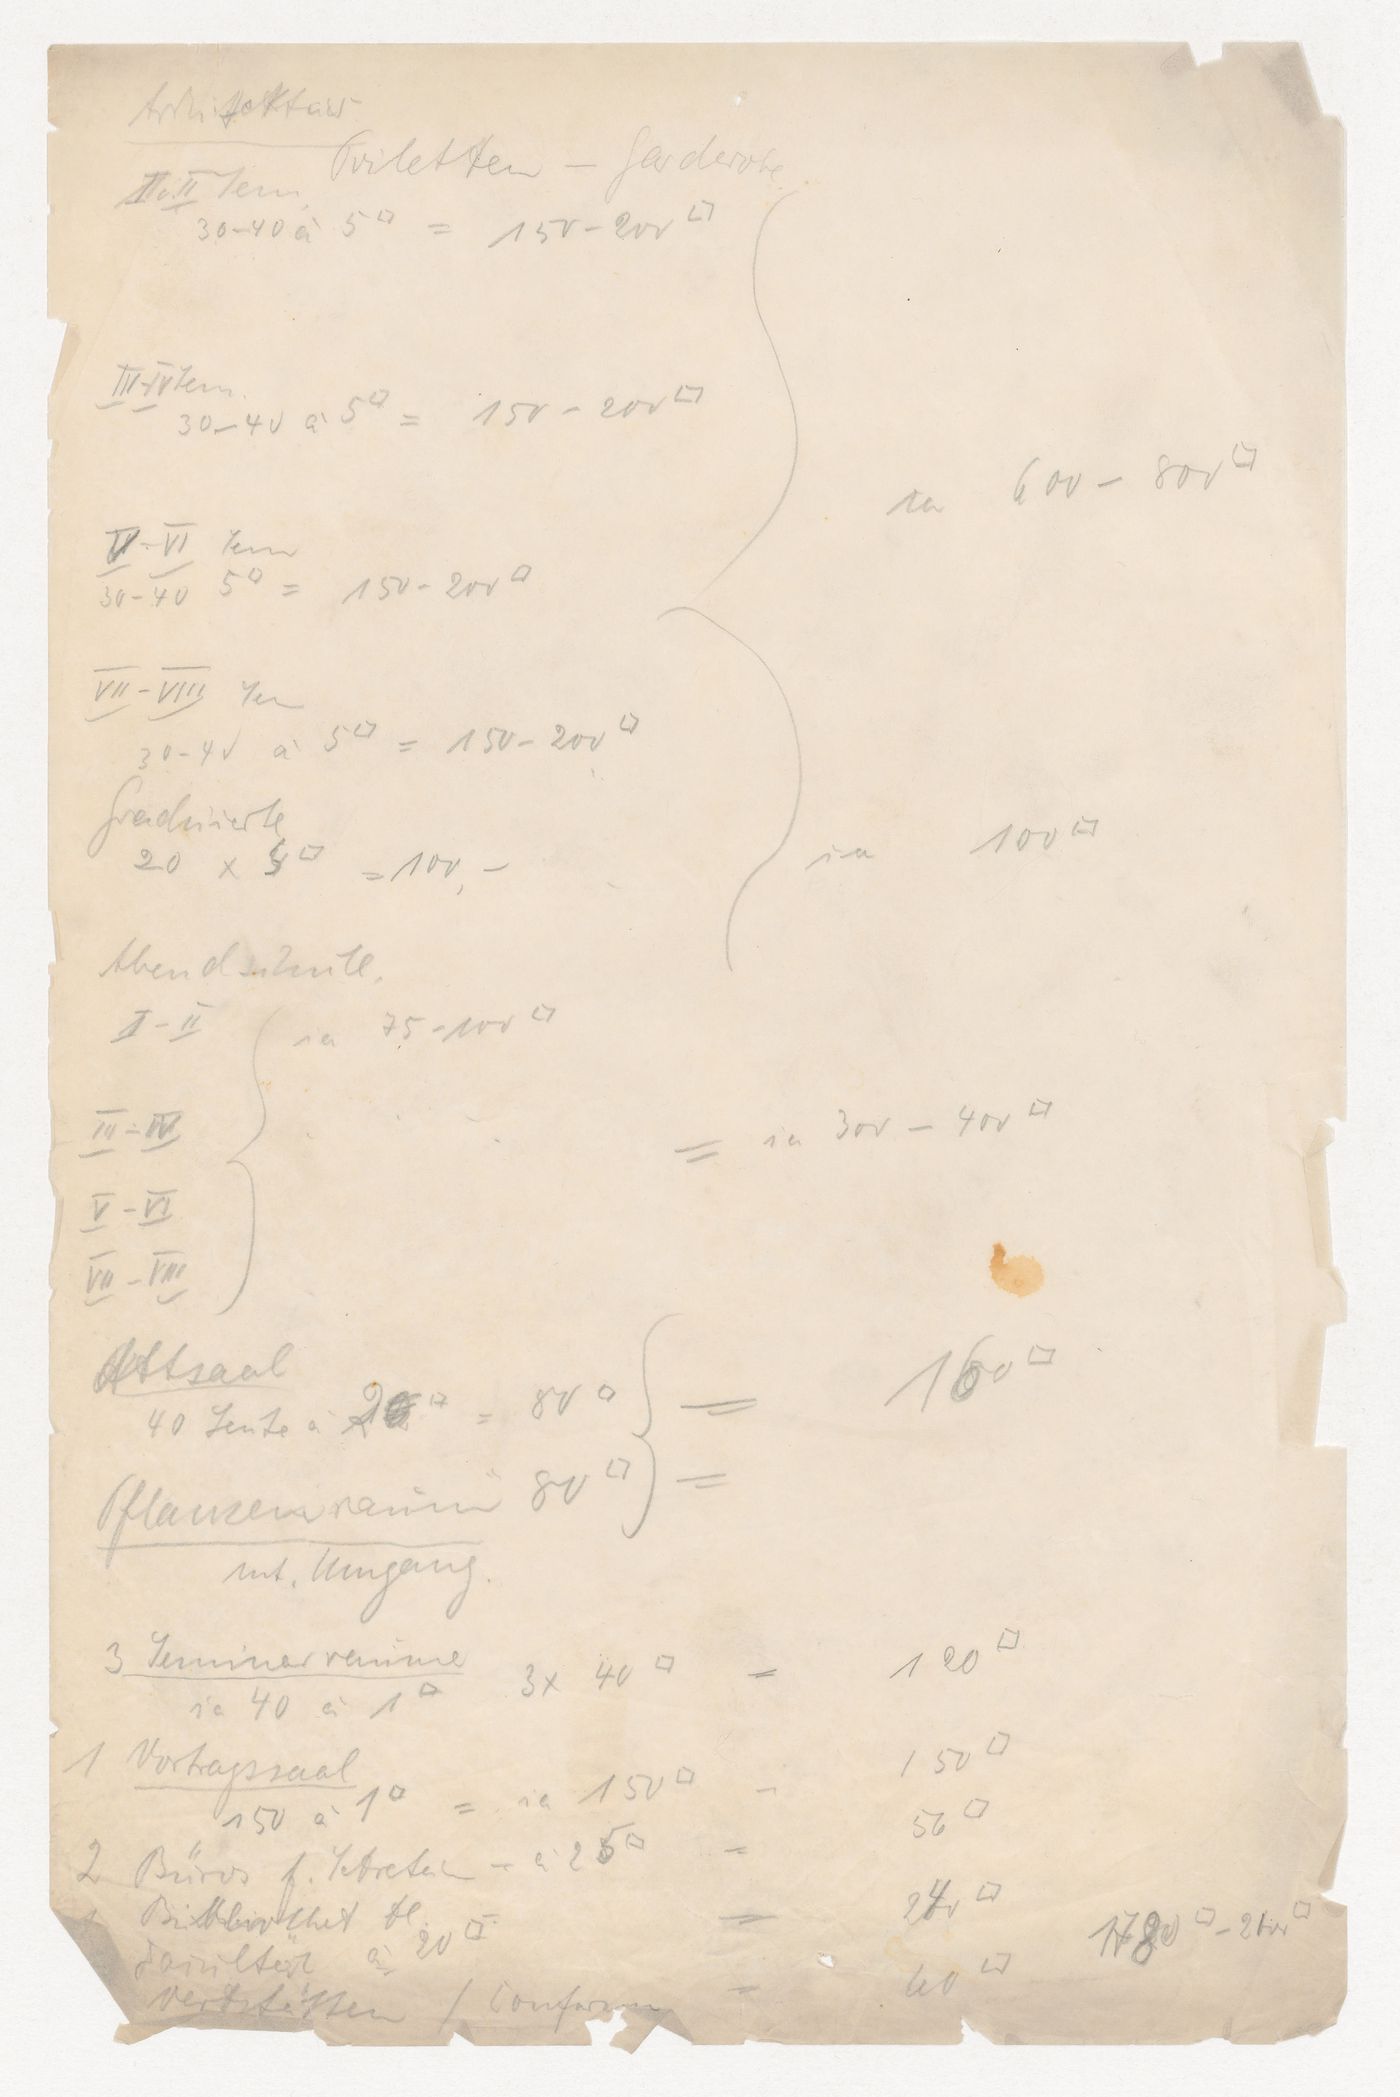 Architektur
Toiletten – Garderobe
I-II Sem.
30-40 à 5□ = 150-200□
III-IV Sem.
30-40 à 5□ = 150-200□
ca 600-800□
V-VI Sem
30-40 5□ = 150-200□
VII-VIII Sem
30-40 à 5□ = 150-200□
Graduierte
20 x 5□ = 100,-
ca 100□
Abendschule.
I-II ca 75-100□
III-IV = ca 300-400□
V-VI
VII-VIII
Aktsaal 160□
40 Leute à 2□ = 80□ =
Pflanzenraum 80□ =
mit Umgang.
3 Seminarräume 3x 40□ = 120□
ca 40 à 1□
1 Vortragssaal 150□
150 à 1□ = ca 150□ =
2 Büros f. Sekretär – à 25□ = 50□
1 Bibliothek = 240□
Fakultät à 20□ 1780□ - 2100□
Werkstätten / = 60□